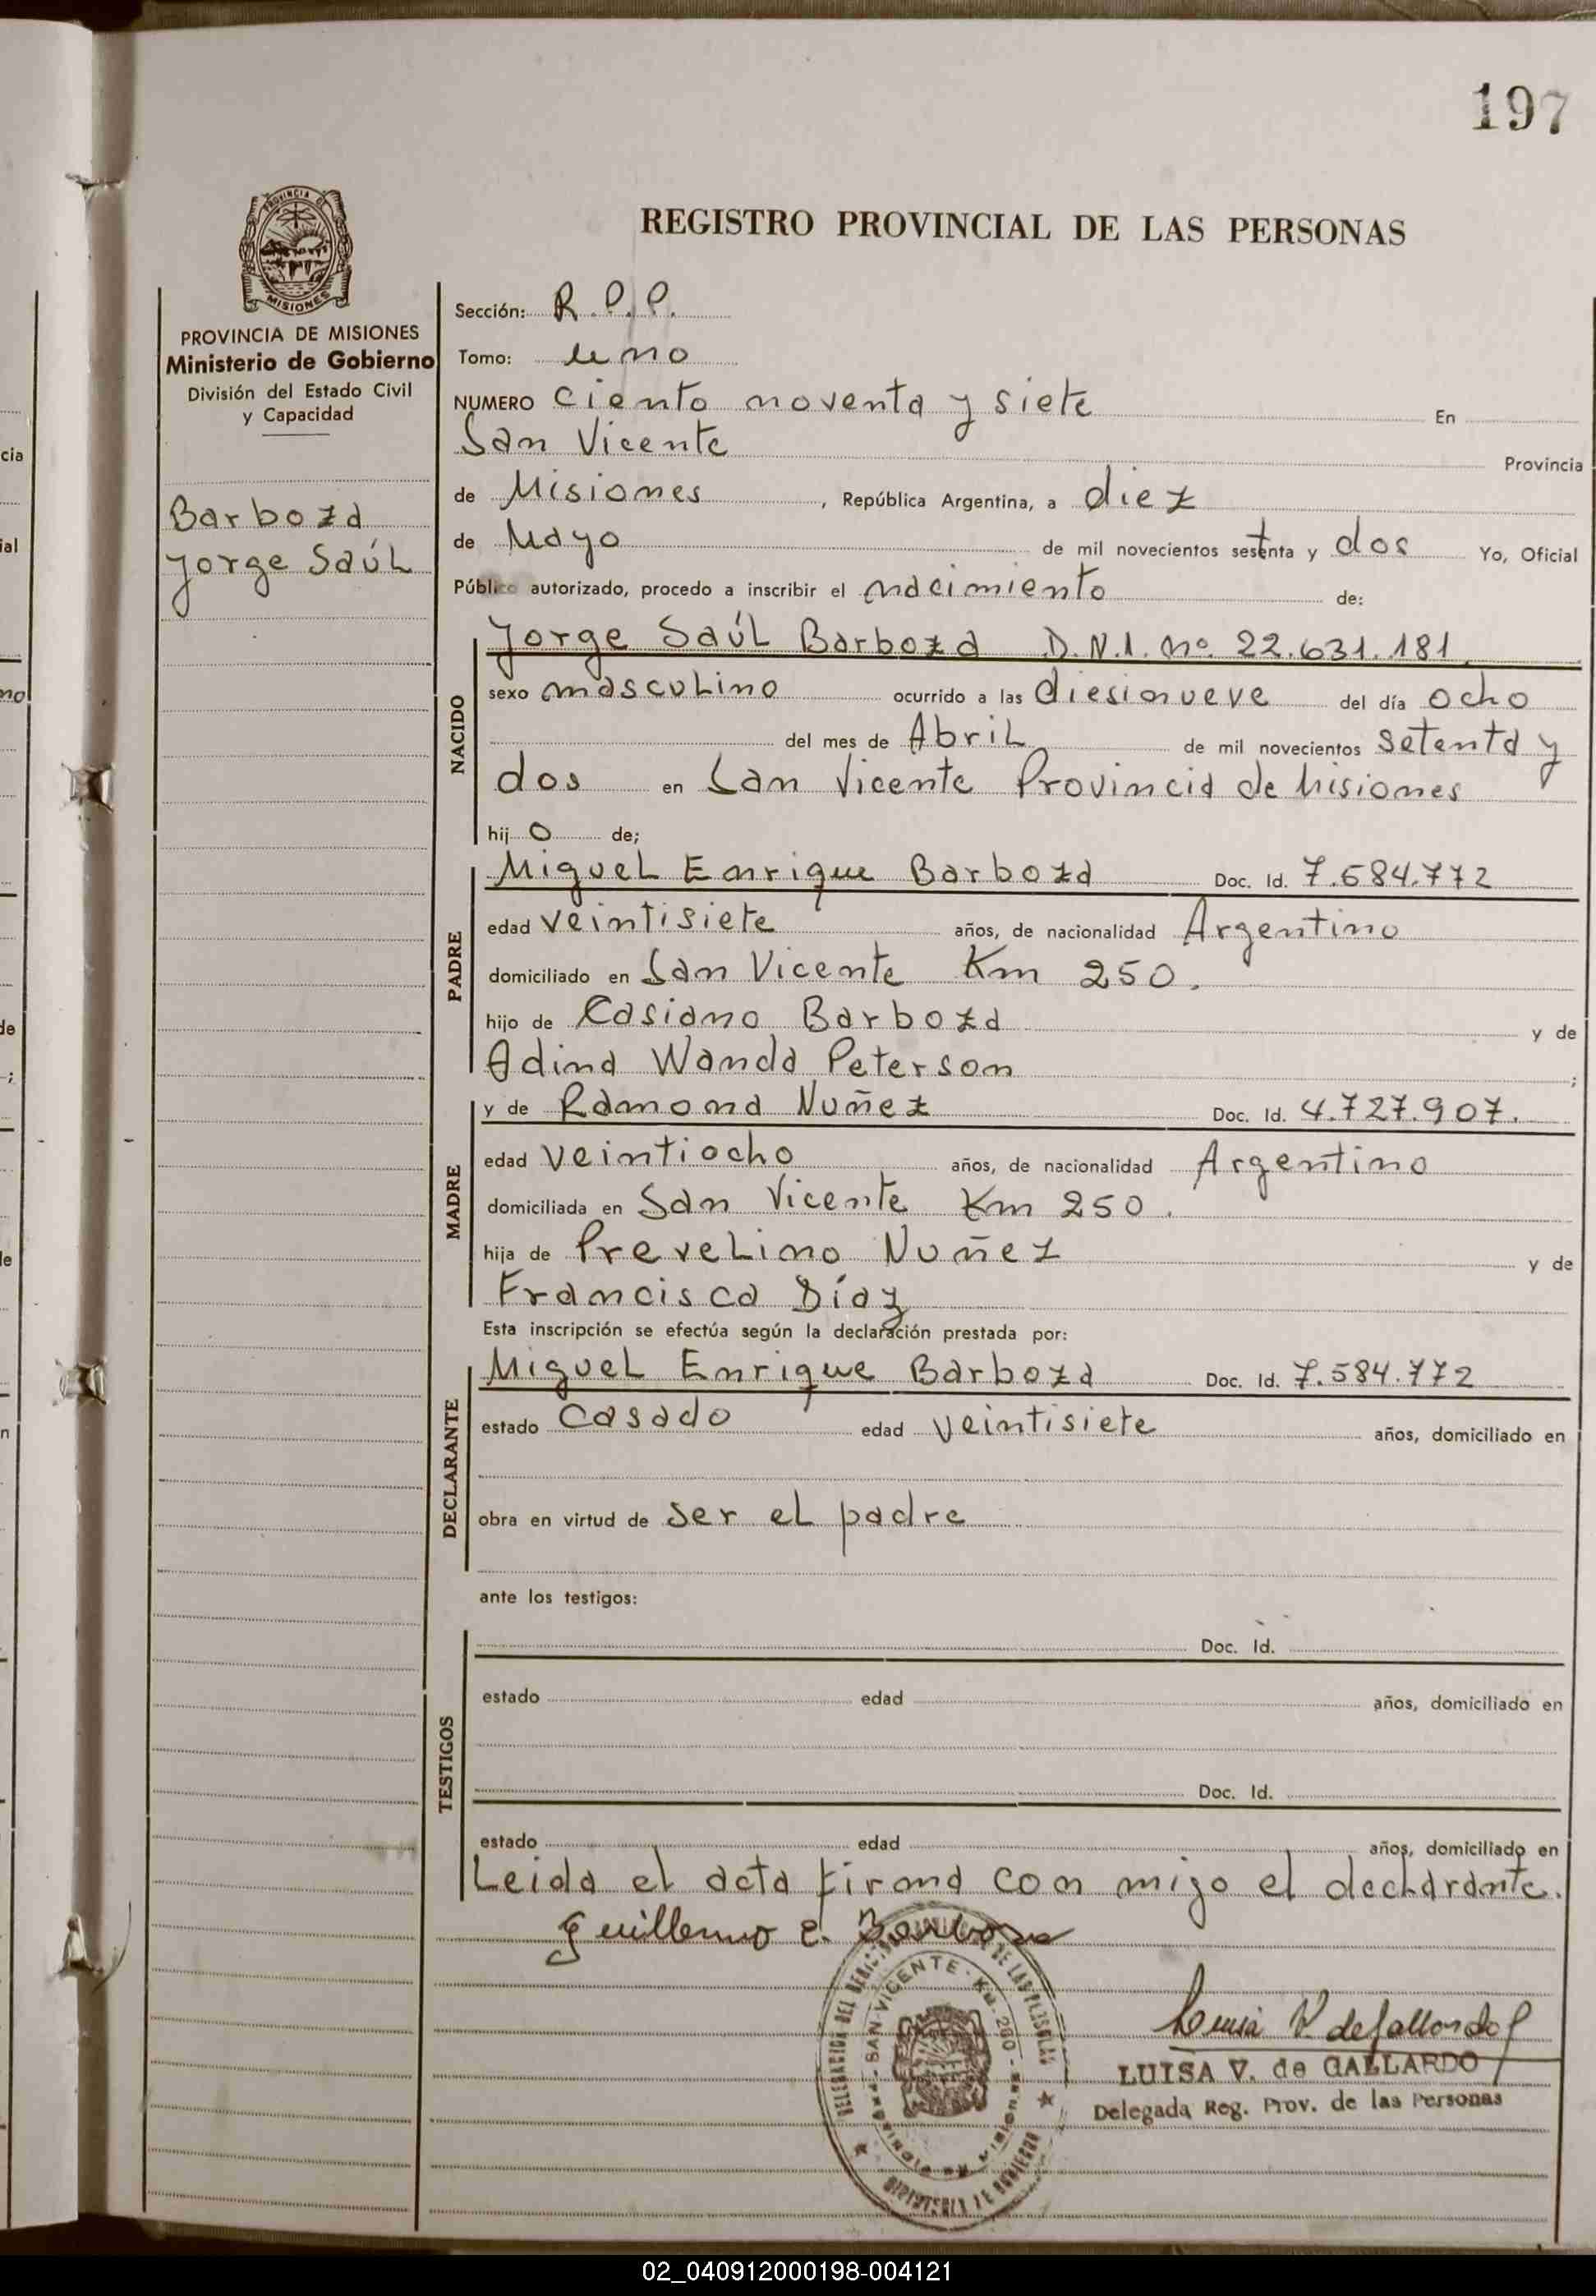 197
REGISTRO PROVINCIAL DE LAS PERSONAS
PROVINCIA DE
MISIONES
PROVINCIA DE MISIONES
Ministerio de Gobierno
División del Estado Civil
y Capacidad
Barboza
Jorge Saúl
Sección: R.P.P.
Tomo: uno
NUMERO ciento noventa y siete En
San Vicente Provincia
de Misiones, República Argentina, a diez
de Mayo de mil novecientos setenta y dos Yo, Oficial
Público autorizado, procedo a inscribir el nacimiento de:
NACIDO
Jorge Saúl Barboza D.N.I. nº. 22.631.181
sexo masculino ocurrido a las diesinueve del día ocho
del mes de Abril de mil novecientos setenta y
dos en San Vicente Provincia de Misiones
hij o de;
PADRE
Miguel Enrique Barboza Doc. Id. 7.584.772
edad veintisiete años, de nacionalidad Argentino
domiciliado en San Vicente Km 250.
hijo de Casiano Barboza y de
Adina Wanda Peterson ;
MADRE
y de Ramona Nuñez Doc. Id. 4.727.907.
edad veintiocho años, de nacionalidad Argentino
domiciliada en San Vicente Km 250.
hija de Prevelino Nuñez y de
Francisca Díaz
Esta inscripción se efectúa según la declaración prestada por:
DECLARANTE
Miguel Enrique Barboza Doc. Id. 7.584.772
estado Casado edad veintisiete años, domiciliado en
obra en virtud de ser el padre
ante los testigos:
TESTIGOS
Doc. Id.
estado edad años, domiciliado en
Doc. Id.
estado edad años, domiciliado en
Leida el acta firma con migo el declarante.
Guillermo E. Barboza
SAN VICENTE - KM. 200 -
Luisa V. de Gallardo
LUISA V. de GALLARDO
Delegada Reg. Prov. de las Personas
02_040912000198-004121